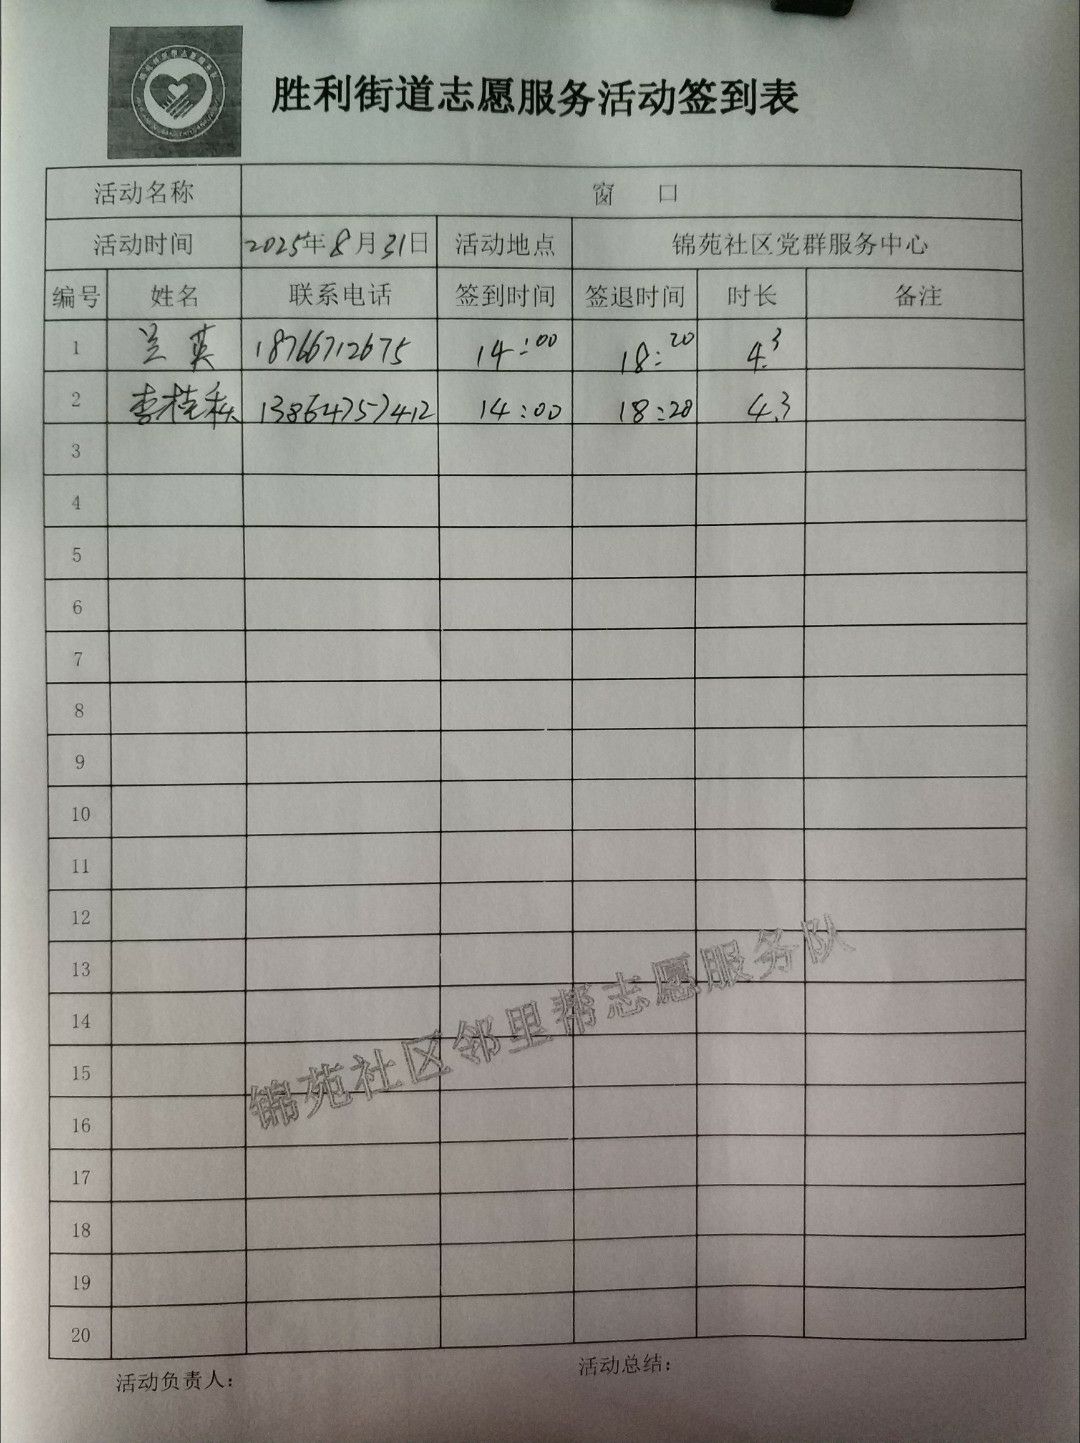 胜利街道志愿服务活动签到表
活动名称 窗 口
活动时间 2025年8月31日 活动地点 锦苑社区党群服务中心
编号 姓名 联系电话 签到时间 签退时间 时长 备注
1 兰英 18766712675 14:00 18:20 4.3
2 李桂秋 13864757412 14:00 18:20 4.3
3
4
5
6
7
8
9
10
11
12
13
14
15
16
17
18
19
20
锦苑社区邻里帮志愿服务队
活动负责人： 活动总结：